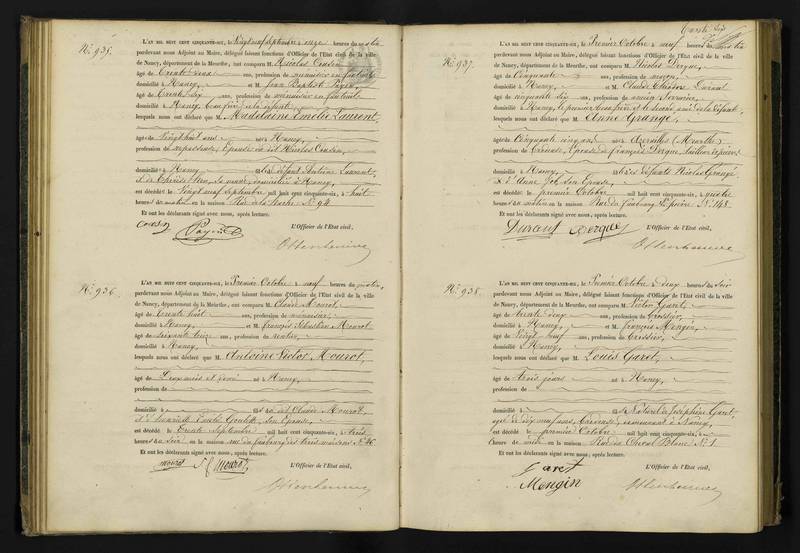 N° 935.
L'AN MIL HUIT CENT CINQUANTE-SIX, le Vingt neuf Septembre à onze heures du matin
pardevant nous Adjoint au Maire, délégué faisant fonctions d'Officier de l'Etat civil de la ville
de Nancy, département de la Meurthe, ont comparu M. Nicolas Cousin
âgé de Trente deux ans, profession de menuisier en fauteuils
domicilié à Nancy et M. Jean Baptiste Payen
âgé de Trente six ans, profession de menuisier en fauteuils
domicilié à Nancy,
lesquels nous ont déclaré que M. Madelaine Emélie Laurent,
âgée de Vingt huit ans née à Nancy,
profession de repasseuse, Epouse du dit Nicolas Cousin,
domicilié à Nancy Laurent,
domiciliée à Nancy,
est décédée le Vingt neuf Septembre mil huit cent cinquante-six, à huit
heures du matin en la maison N° 94
Et ont les déclarants signé avec nous, après lecture.
L'Officier de l'Etat civil,
Cousin Payen
N° 936.
L'AN MIL HUIT CENT CINQUANTE-SIX, le Premier Octobre à neuf heures du matin,
pardevant nous Adjoint au Maire, délégué faisant fonctions d'Officier de l'Etat civil de la ville
de Nancy, département de la Meurthe, ont comparu M. Claude Mourot,
âgé de Trente huit ans, profession de menuisier,
domicilié à Nancy et M. françois Sébastien Mourot
âgé de soixante treize ans, profession de rentier,
domicilié à Nancy,
lesquels nous ont déclaré que M. Antoine Victor Mourot,
âgé de Deux mois et demi né à Nancy,
profession de
domicilié à fils du dit Claude Mourot,
son Epouse,
est décédé le Trente Septembre mil huit cent cinquante-six, à trois
heures du soir en la maison rue du faubourg des trois maisons N° 46.
Et ont les déclarants signé avec nous, après lecture.
L'Officier de l'Etat civil,
mourot Mourot
N° 937.
L'AN MIL HUIT CENT CINQUANTE-SIX, le Premier Octobre à neuf heures du matin
pardevant nous Adjoint au Maire, délégué faisant fonctions d'Officier de l'Etat civil de la ville
de Nancy, département de la Meurthe, ont comparu M. Nicolas Derque,
âgé de Cinquante ans, profession de
domicilié à Nancy, et M. Claude Théodore Durand
âgé de cinquante six ans, profession de ancien Serrurier,
domicilié à Nancy, le premier beau frère et le second ami de la défunte,
lesquels nous ont déclaré que M. Anne Grangé,
âgée de Cinquante cinq ans née à Azerailles (Meurthe)
profession de Epouse de françois Derque, tailleur de pierres
domicilié à Nancy, fille des défunts Nicolas Grangé
son Epouse,
est décédée le premier Octobre mil huit cent cinquante-six, à quatre
heures du matin en la maison Rue du faubourg St. pierre N° 148.
Et ont les déclarants signé avec nous, après lecture.
L'Officier de l'Etat civil,
Durand Derque
N° 938.
L'AN MIL HUIT CENT CINQUANTE-SIX, le Premier Octobre à deux heures du soir
pardevant nous Adjoint au Maire, délégué faisant fonctions d'Officier de l'Etat civil de la ville
de Nancy, département de la Meurthe, ont comparu M. Victor Garet,
âgé de trente deux ans, profession de
domicilié à Nancy, et M. françois Mengin,
âgé de Vingt neuf ans, profession de
domicilié à Nancy,
lesquels nous ont déclaré que M. Louis Garet,
âgé de trois jours né à Nancy,
profession de
domicilié à fils Naturel de Joséphine Garet,
âgée de dix neuf ans, demeurant à Nancy,
est décédé le premier Octobre mil huit cent cinquante-six, à
heure de midi en la maison Rue du Cheval Blanc N° 1.
Et ont les déclarants signé avec nous, après lecture.
L'Officier de l'Etat civil,
Garet
Mengin